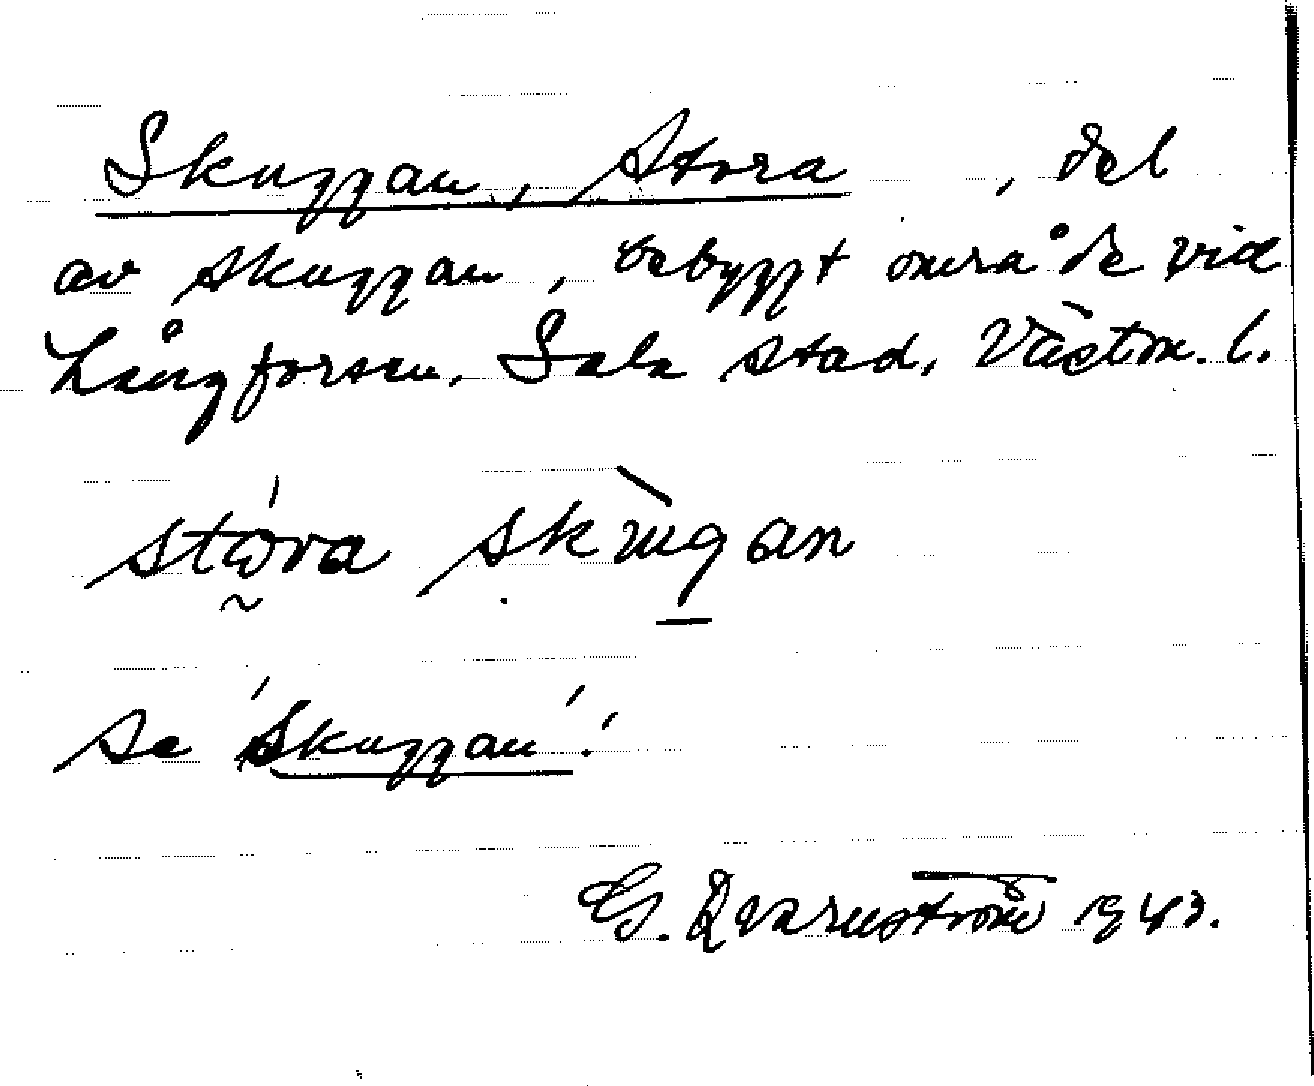 Skuggan, Stora , del
av Skuggan, bebyggt område vid
Långforsen, Sala stad, Västm. l.
stóra skùgan
se 'Skuggan'!
G. Qvarnström 1943.